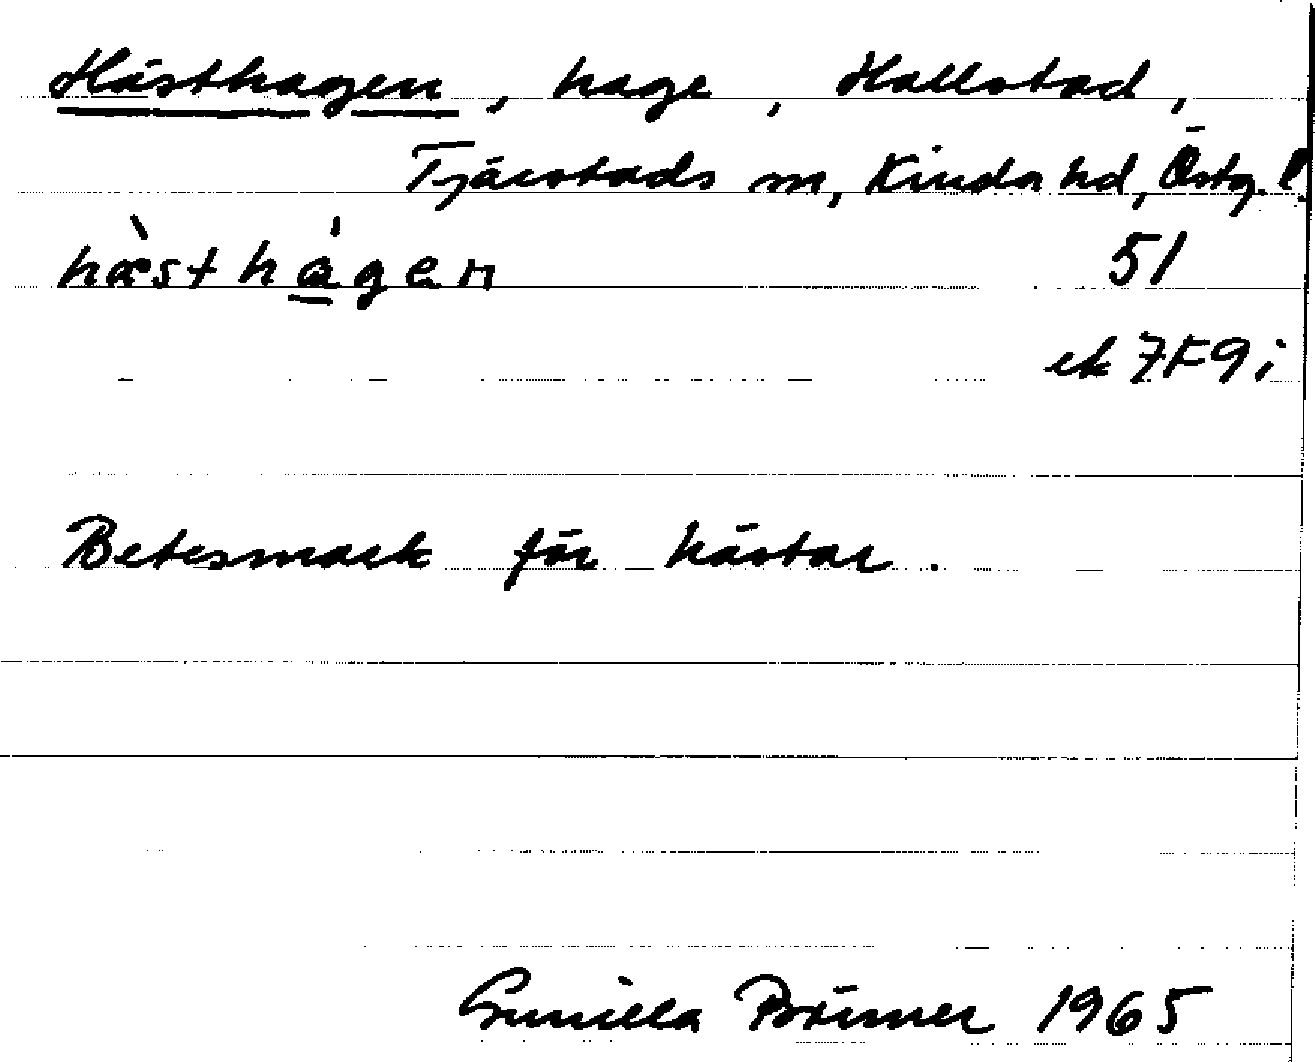 Hästhagen, hage, Hallstad,
Tjärstads sn, Kinda hd, Östg. l.
hæ̀sthágen
51
ek 7F9i
Betesmark för hästar.
Gunilla Brümer 1965